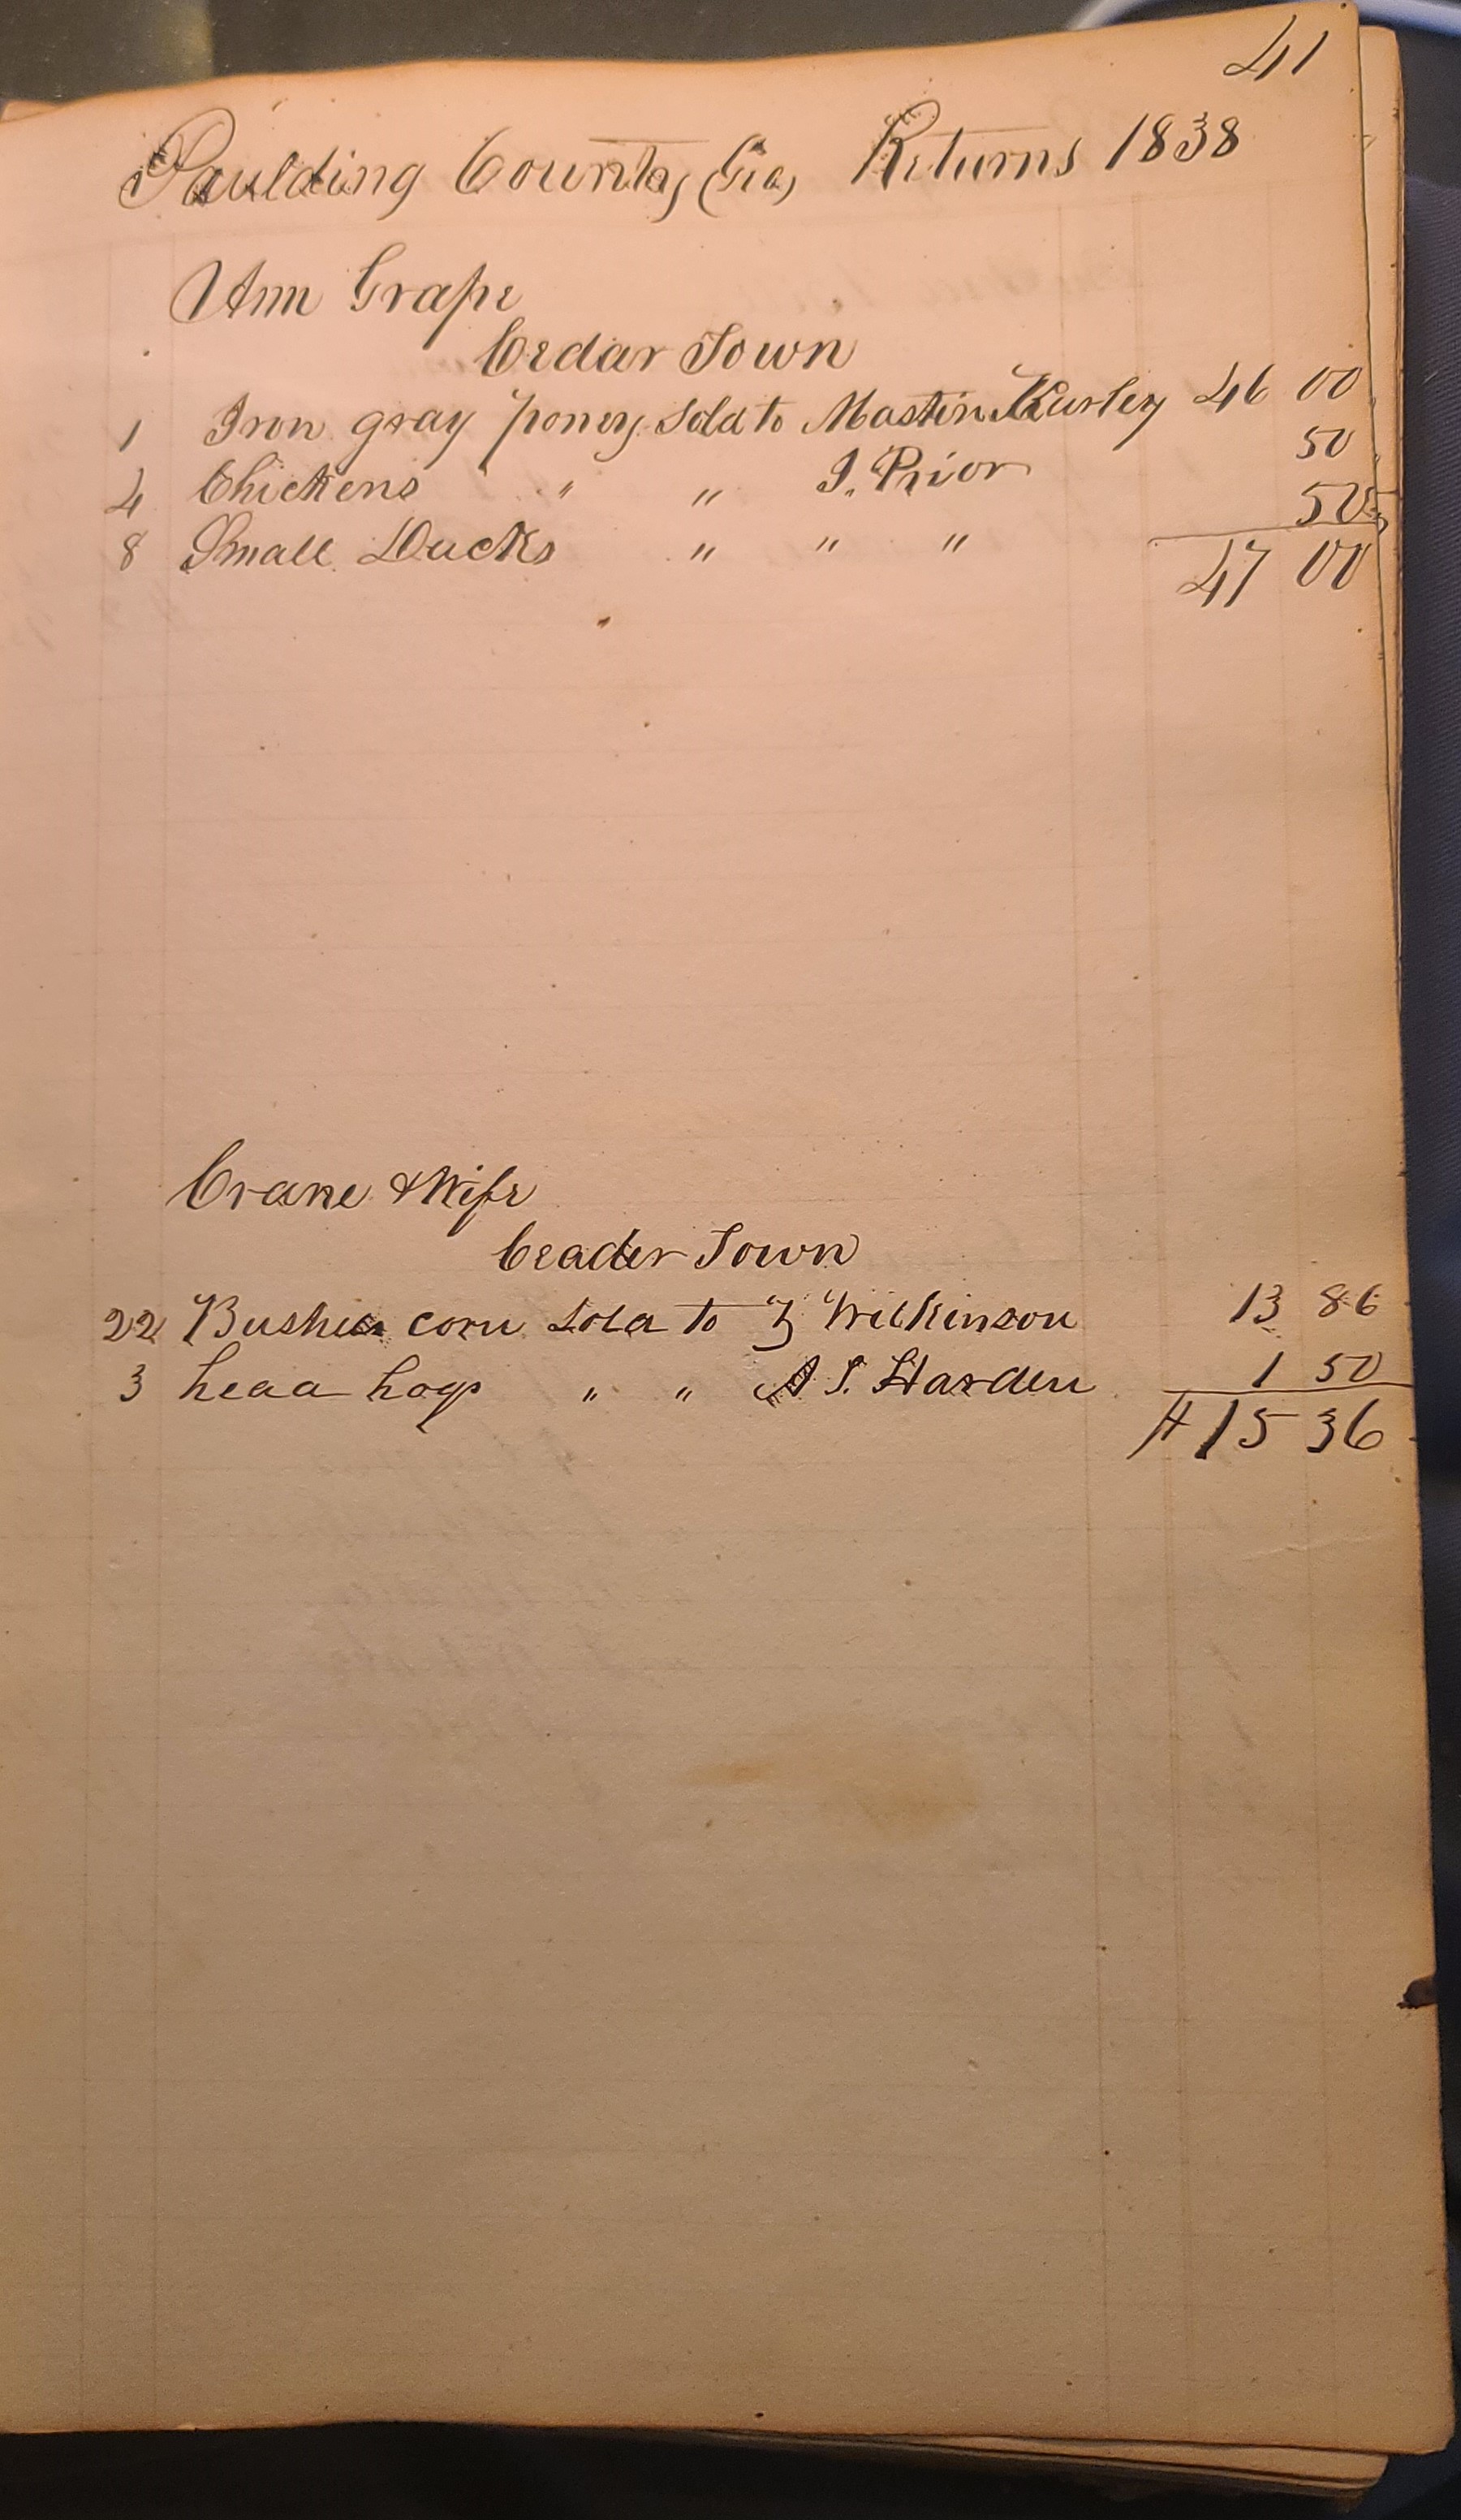 41
Paulding County (Ga) Returns 1838
Ann Grape
Cedar Town
1 Iron gray poney Sold to Mastin Kurley 46 00
4 Chickens " " J. Prior 50
8 Small Ducks " " " 50
47 00
Crane & Wife
Ceader Town
22 Bushels corn Sold to Z Wilkinson 13 86
3 head hogs " " A S. Harden 1 50
15 36